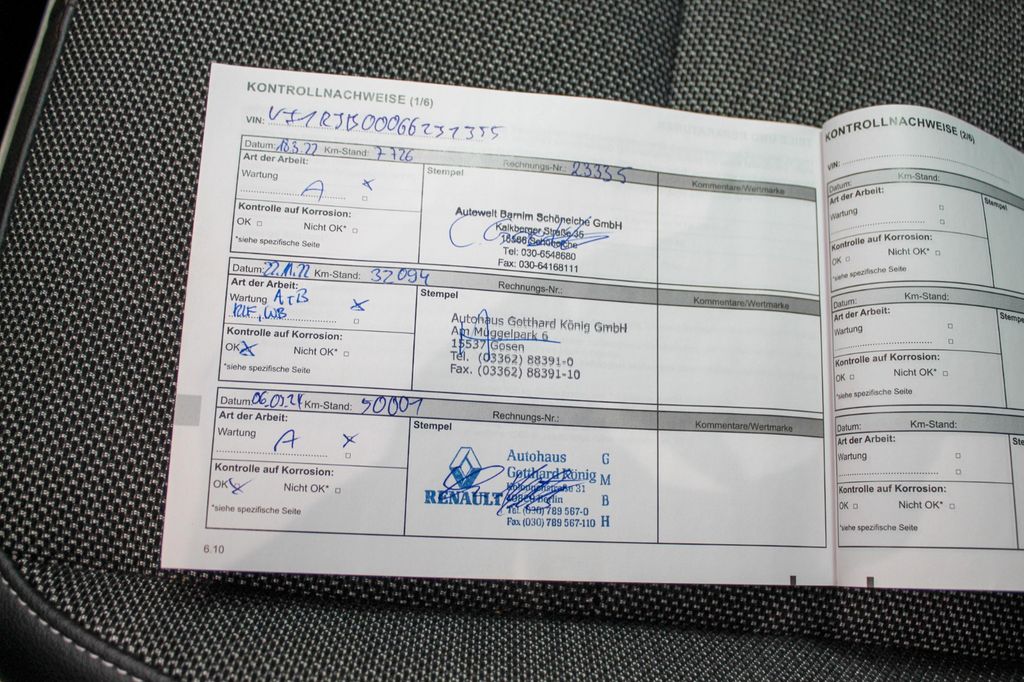 KONTROLLNACHWEISE (1/6)
VIN: VF1RJB00066231355
Datum: 18.3.22 Km-Stand: 7726 Rechnungs-Nr.: 23335
Art der Arbeit:
Stempel
Kommentare/Wertmarke
Wartung
A x
Kontrolle auf Korrosion:
OK □ Nicht OK* □
*siehe spezifische Seite
Autowelt Barnim Schöneiche GmbH
Kalkberger Straße 35
Tel: 030-6548680
Fax: 030-64168111
Datum: 22.11.22 Km-Stand: 32094 Rechnungs-Nr.:
Art der Arbeit:
Stempel
Kommentare/Wertmarke
Wartung A+B x
Kontrolle auf Korrosion:
OK x Nicht OK* □
*siehe spezifische Seite
Autohaus Gotthard König GmbH
Am Müggelpark 6
15537 Gosen
Tel. (03362) 88391-0
Fax. (03362) 88391-10
Datum: 06.03.24 Km-Stand: 50001 Rechnungs-Nr.:
Art der Arbeit:
Stempel
Kommentare/Wertmarke
Wartung
A x
Kontrolle auf Korrosion:
OK x Nicht OK* □
*siehe spezifische Seite
RENAULT
Autohaus G
Gotthard König M
Kolonnenstraße 31
10829 Berlin B
Tel. (030) 789 567-0
Fax (030) 789 567-110 H
6.10
KONTROLLNACHWEISE (2/6)
VIN:
Datum: Km-Stand:
Art der Arbeit:
Stempel
Wartung
Kontrolle auf Korrosion:
OK □ Nicht OK* □
*siehe spezifische Seite
Datum: Km-Stand:
Art der Arbeit:
Stempe
Wartung
Kontrolle auf Korrosion:
OK □ Nicht OK* □
*siehe spezifische Seite
Datum: Km-Stand:
Art der Arbeit:
Ste
Wartung
Kontrolle auf Korrosion:
OK □ Nicht OK* □
*siehe spezifische Seite